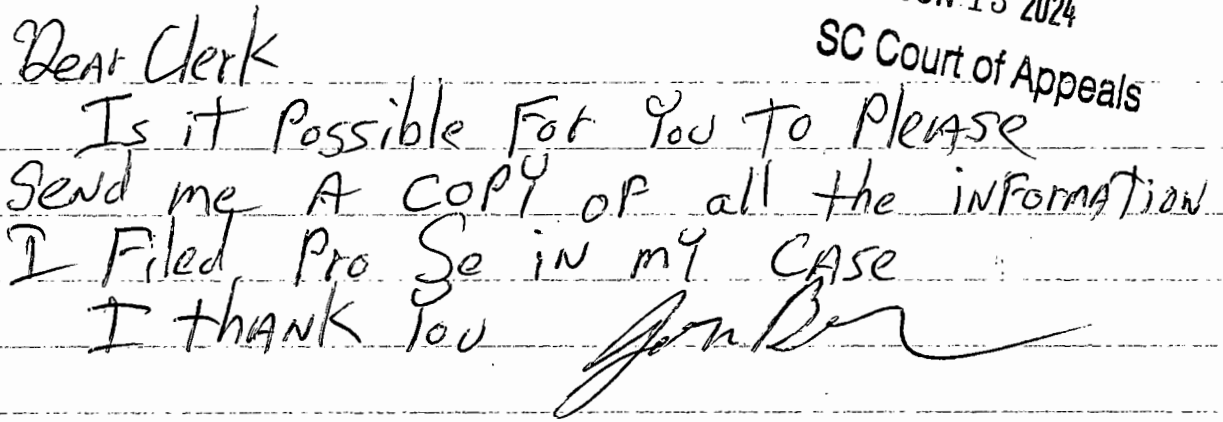 13 2024
SC Court of Appeals
Dear Clerk
Is it Possible For You To Please
Send me A COPY OF all the inFormATioN
I Filed Pro Se iN mY CASe
I thANK You